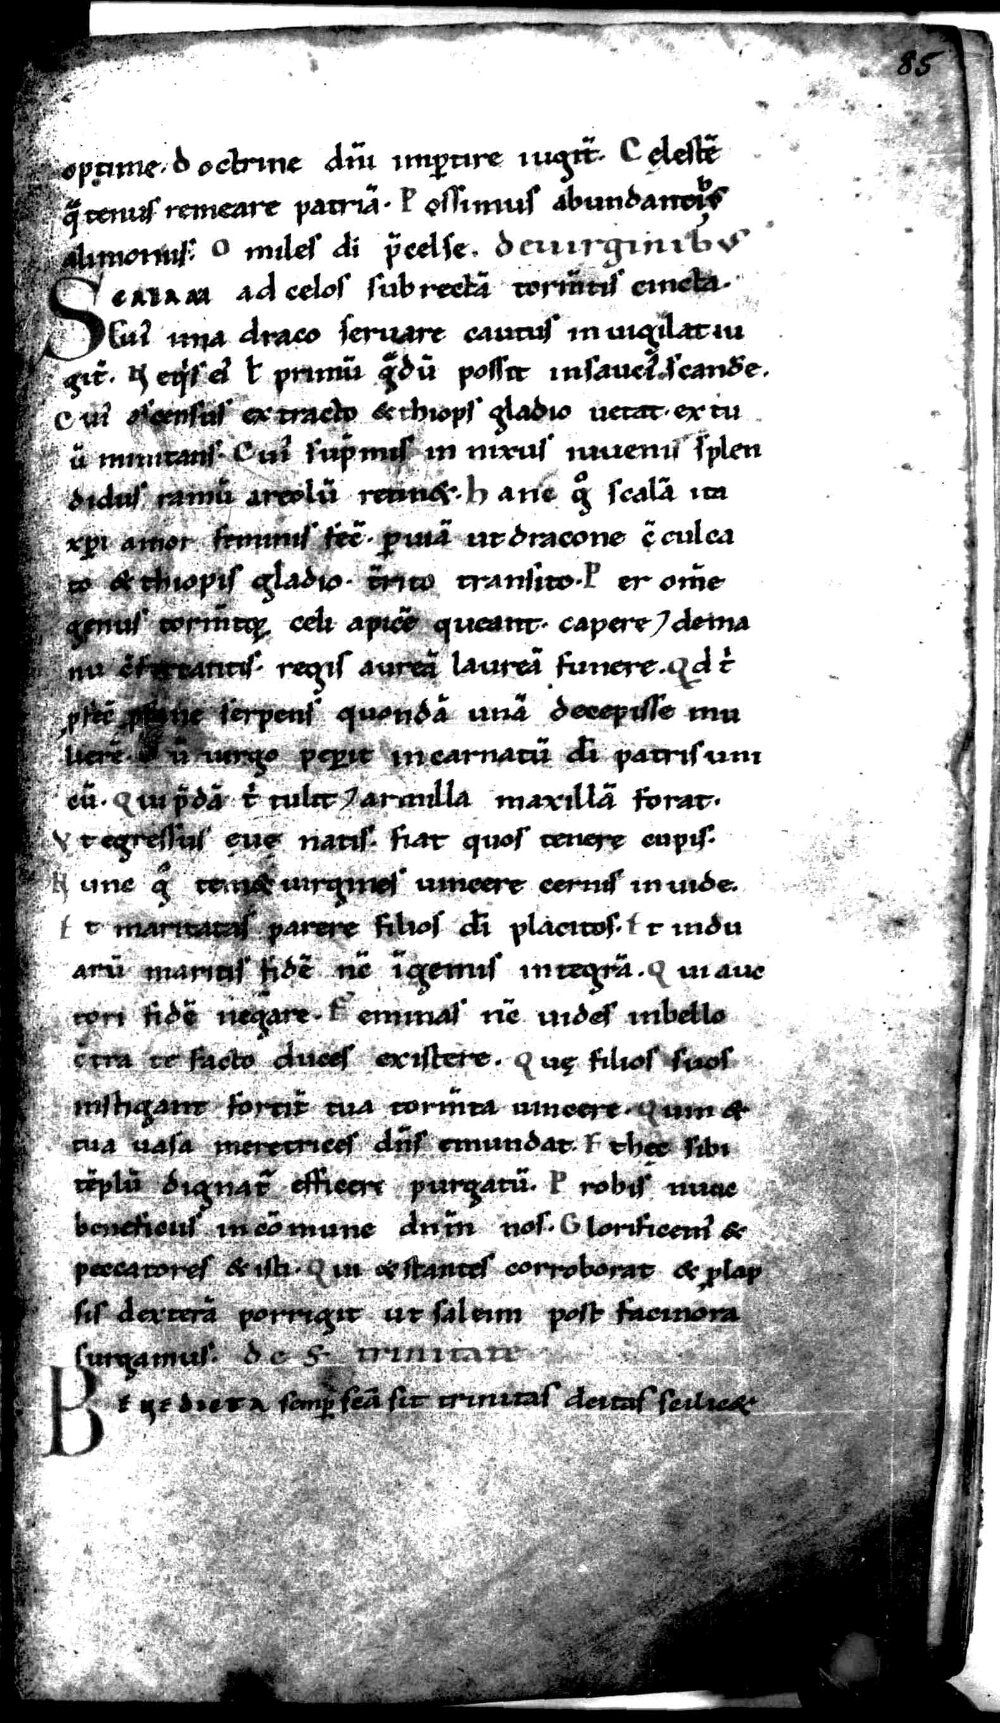 85
optime. doctrine diu̅ imꝑtire iugit̅. Celeste̅
qᷓtenus remeare patria̅. Possimus abundantib;
alimoniis. O miles di p̅celse. de uirginibus
SCALAM ad celos subrecta̅ torm̅tis cincta.
Cuiꝰ ima draco seruare cautus inuigilat iu
git̅. Neq̇s eiꝰ ł primu̅ gᷓdu̅ possit insauciꝰ scande̅.
Cuiꝰ ascensus extracto &thiops gladio uetat. exitu
u̅ minitans. Cuiꝰ sup̅mis innixus iuuenis splen
didus ramu̅ aureolu̅ retin&. hanc gͦ scala̅ ita
xp̅i amor feminis fec̅. ꝑuia̅ ut dracone c̅culca
to &thiopis gladio. t̅rito transito. Per om̅e
genus torm̅toꝝ celi apice̅ queant. capere & de ma
nu c̅fortantis. regis aurea̅ laurea̅ sumere. Qd t̅
serpens quonda̅ una̅ decepisse mu
liere̅. u̅ uirgo peꝑit incarnatu̅ di̅ patris uni
cu̅. Qui p̅da̅ t̅ tulit & armilla maxilla̅ forat.
Vt egressus eue̜ natis. fiat quos tenere cupis.
Nunc gͦ tem& uirgines uincere cernis inuide.
Et maritatas parere filios di̅ placitos. Et uidu
aru̅ maritis fide̅ nc̅ i̅gemis integra̅. Qui auc
tori fide̅ negare. Feminas nc̅ uides in bello
c̅tra te facto duces existere. Que̜ filios suos
instigant fortit̅ tua torm̅ta uincere. Quin &
tua uasa meretrices dn̅s emundat. Et hec sibi
te̅plu̅ dignat̅ efficere purgatu̅. Pro his nunc
beneficiis in co̅mune dn̅m nos. Glorificemꝰ &
peccatores & isti. Qui & stantes corroborat & ꝓlap
sis dextera̅ porrigit ut saltim post facinora
surgamus. de S trinitate
BENEDICTA semꝑ sca̅ sit trinitas deitas scilic&